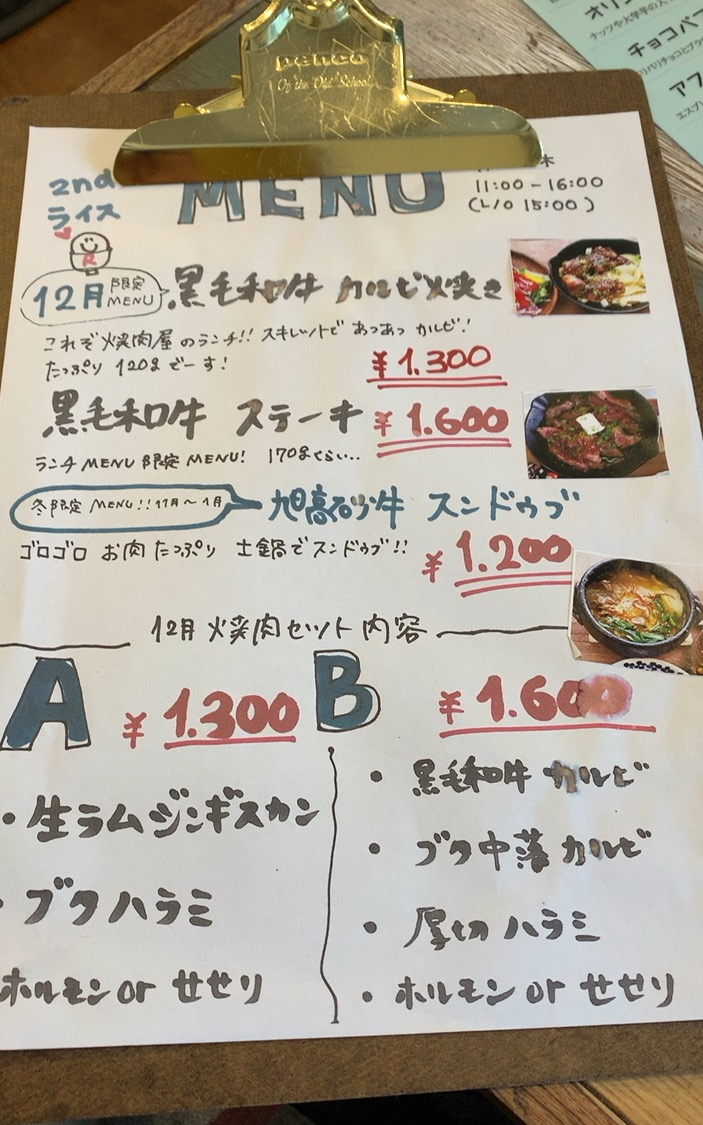 オリ
ナッツや大学芋の入
チョコバ
パリパリチョコとブラ
アフ
エスプレ
penco
Of the Old School
2nd
ライス
MENU
木
11:00-16:00
(L/O 15:00)
R
12月 限定 MENU
黒毛和牛 カルビ火焼き
これぞ焼肉屋のランチ!! スキレットで あつあつ カルビ!
たっぷり 120gでーす!
¥1.300
黒毛和牛 ステーキ ¥1.600
ランチMENU 限定MENU! 170gくらい...
冬限定 MENU!! 11月〜1月
旭高砂牛 スンドゥブ
ゴロゴロ お肉 たっぷり 土鍋でスンドゥブ!!
¥1.200
12月 焼肉セット内容
A ¥1.300
・生ラムジンギスカン
・ブタハラミ
ホルモン or せせり
B ¥1.600
・黒毛和牛 カルビ
・ブタ中落カルビ
・厚切ハラミ
・ホルモン or せせり